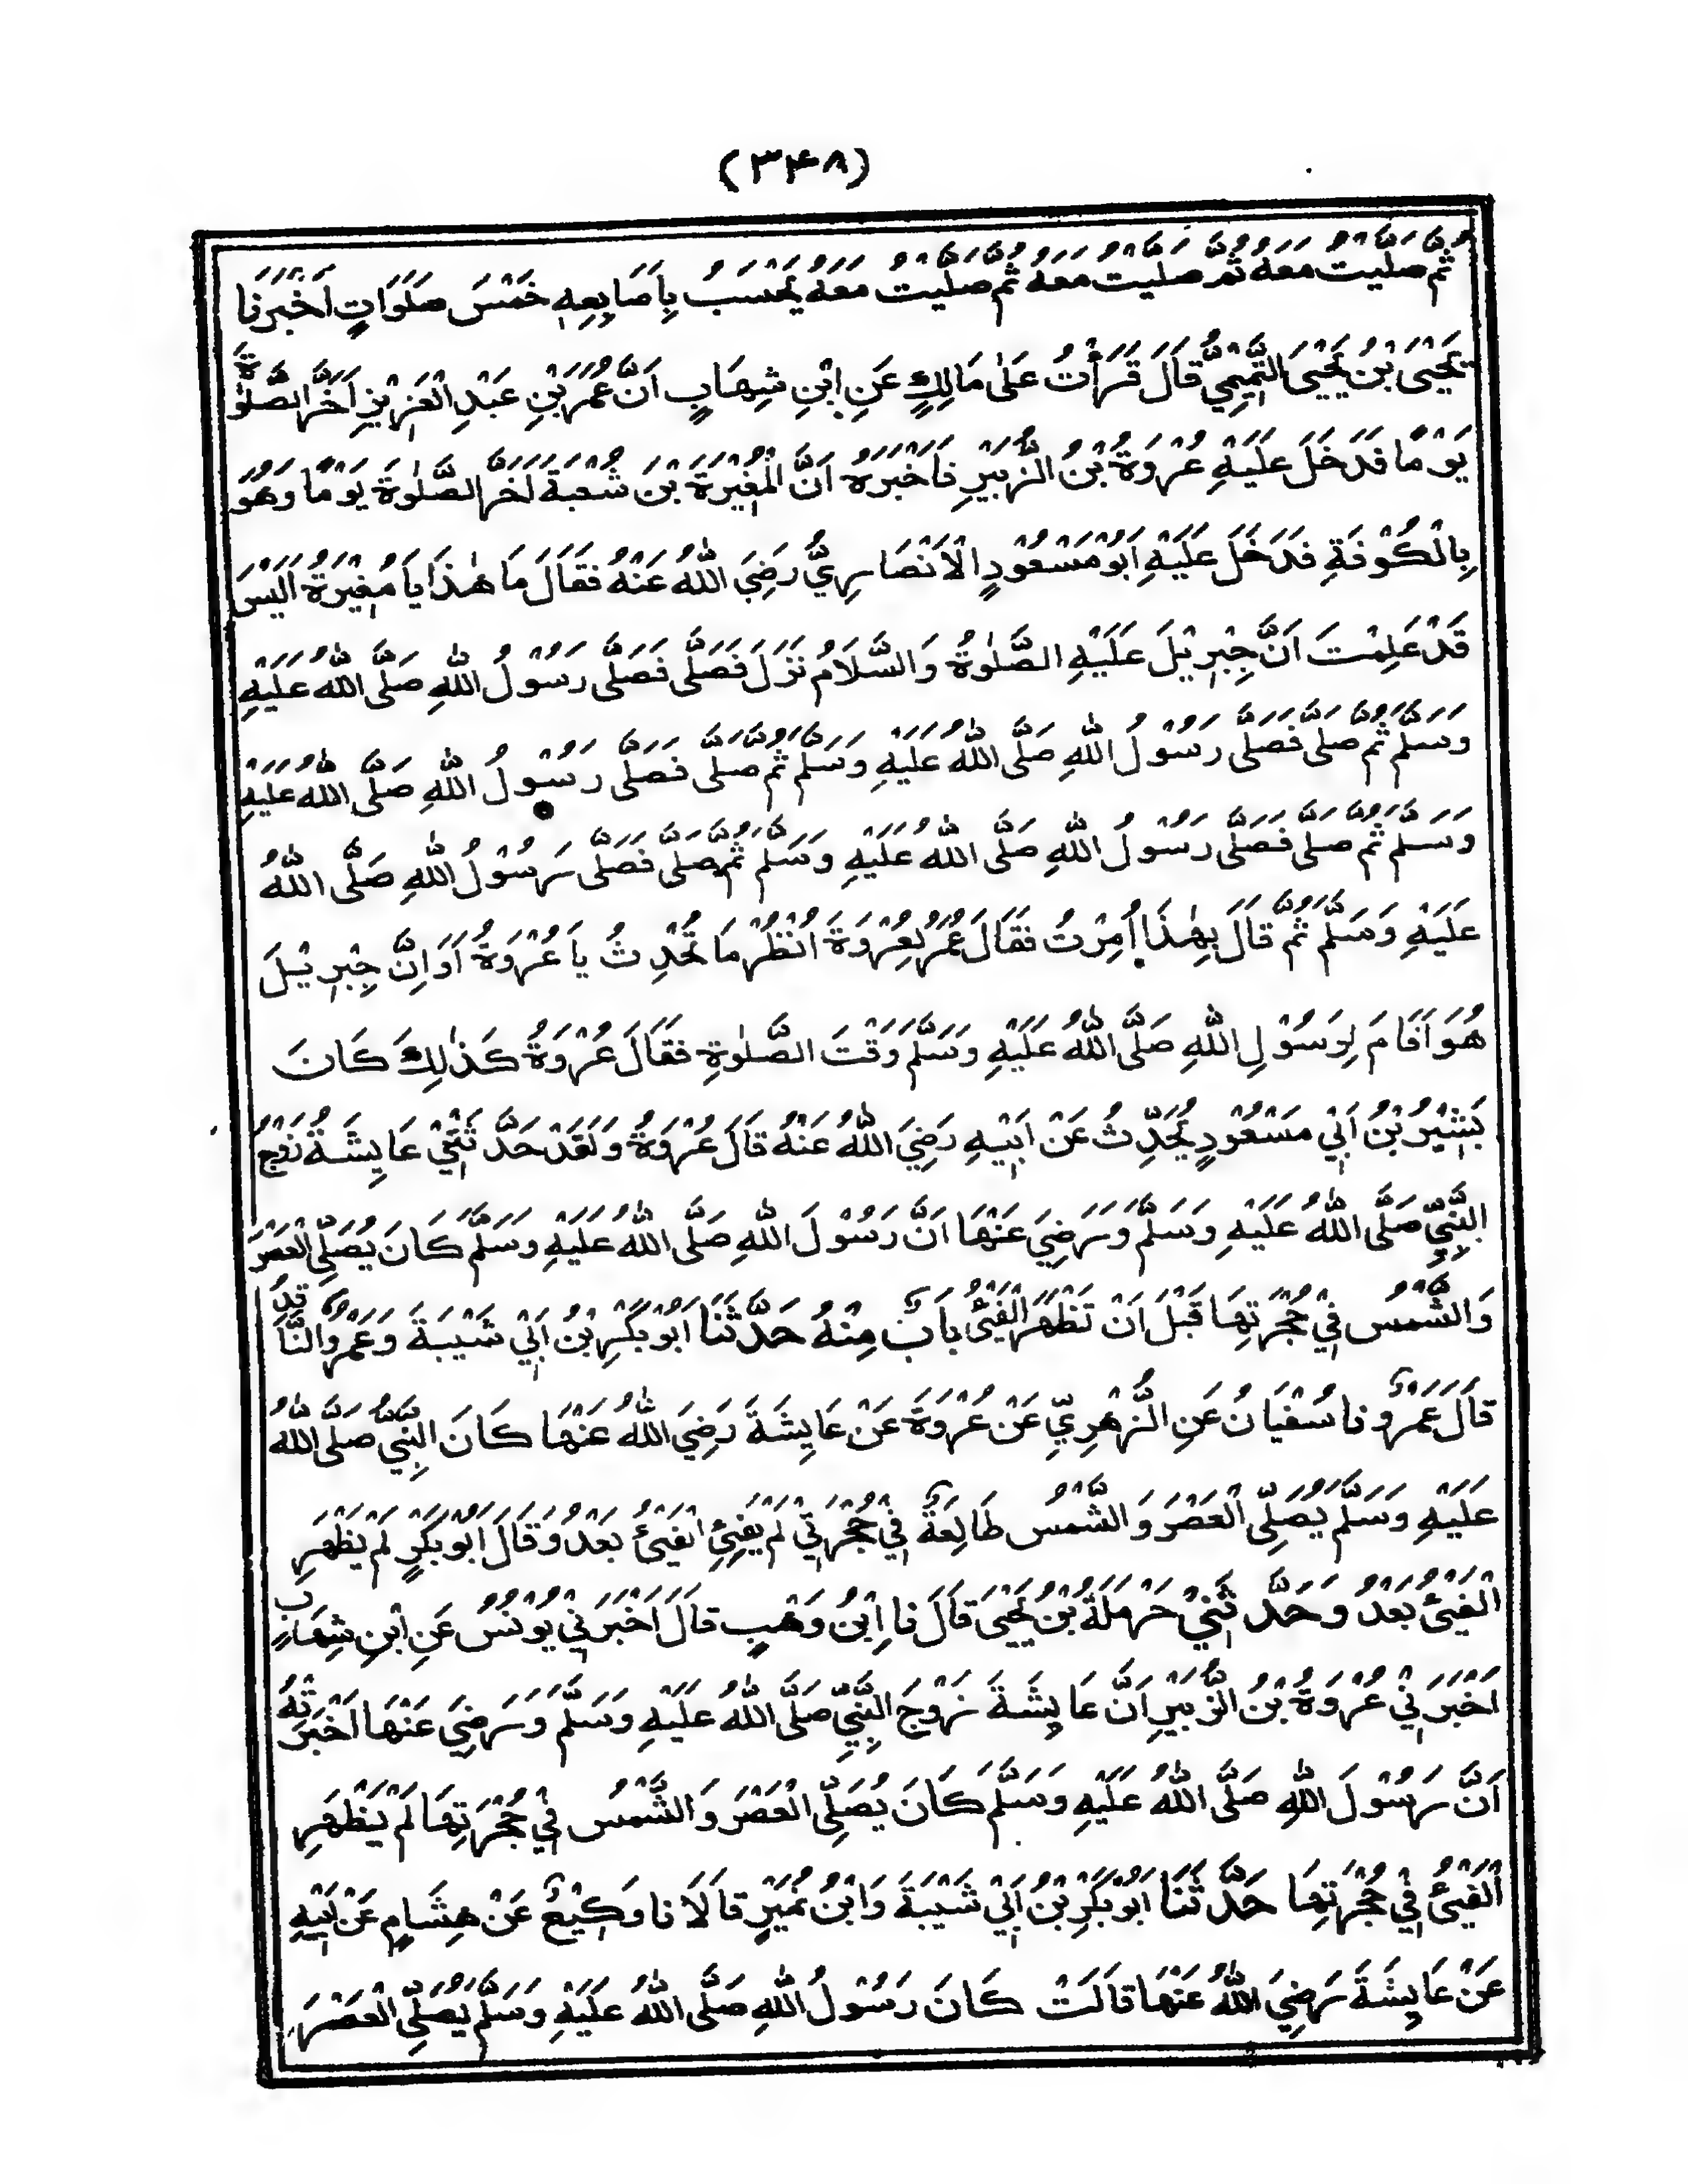 (۳۴۸)
ثُمَّ صَلَّيْتُ مَعَهُ ثُمَّ صَلَّيْتُ مَعَهُ ثُمَّ صَلَّيْتُ مَعَهُ يَحْسَبُ بِاَصَابِعِهٖ خَمْسَ صَلَوَاتٍ اَخْبَرَنَا
يَحْيَى بْنُ يَحْيَى التَّمِيْمِيُّ قَالَ قَرَأْتُ عَلٰى مَالِكٍ عَنِ ابْنِ شِهَابٍ اَنَّ عُمَرَ بْنِ عَبْدِ الْعَزِيْزِ اَخَّرَ الصَّلٰوةَ
يَوْمًا فَدَخَلَ عَلَيْهِ عُرْوَةُ بْنُ الزُّبَيْرِ فَاَخْبَرَهُ اَنَّ الْمُغِيْرَةَ بْنَ شُعْبَةَ اَخَّرَ الصَّلٰوةَ يَوْمًا وَهُوَ
بِالْكُوْفَةِ فَدَخَلَ عَلَيْهِ اَبُوْ مَسْعُوْدٍ الْاَنْصَارِيُّ رَضِيَ اللّٰهُ عَنْهُ فَقَالَ مَا هٰذَا يَا مُغِيْرَةُ اَلَيْسَ
قَدْ عَلِمْتَ اَنَّ جِبْرِيْلَ عَلَيْهِ الصَّلٰوةُ وَالسَّلَامُ نَزَلَ فَصَلّٰى فَصَلّٰى رَسُوْلُ اللّٰهِ صَلَّى اللّٰهُ عَلَيْهِ
وَسَلَّمَ ثُمَّ صَلّٰى فَصَلّٰى رَسُوْلُ اللّٰهِ صَلَّى اللّٰهُ عَلَيْهِ وَسَلَّمَ ثُمَّ صَلّٰى فَصَلّٰى رَسُوْلُ اللّٰهِ صَلَّى اللّٰهُ عَلَيْهِ
وَسَلَّمَ ثُمَّ صَلّٰى فَصَلّٰى رَسُوْلُ اللّٰهِ صَلَّى اللّٰهُ عَلَيْهِ وَسَلَّمَ ثُمَّ صَلّٰى فَصَلّٰى رَسُوْلُ اللّٰهِ صَلَّى اللّٰهُ
عَلَيْهِ وَسَلَّمَ ثُمَّ قَالَ بِهٰذَا اُمِرْتُ فَقَالَ عُمَرُ لِعُرْوَةَ اُنْظُرْ مَا تُحَدِّثُ يَا عُرْوَةُ اَوَاِنَّ جِبْرِيْلَ
هُوَ اَقَامَ لِرَسُوْلِ اللّٰهِ صَلَّى اللّٰهُ عَلَيْهِ وَسَلَّمَ وَقْتَ الصَّلٰوةِ فَقَالَ عُرْوَةُ كَذٰلِكَ كَانَ
بَشِيْرُ بْنُ اَبِيْ مَسْعُوْدٍ يُحَدِّثُ عَنْ اَبِيْهِ رَضِيَ اللّٰهُ عَنْهُ قَالَ عُرْوَةُ وَلَقَدْ حَدَّثَتْنِيْ عَايِشَةُ زَوْجُ
النَّبِيِّ صَلَّى اللّٰهُ عَلَيْهِ وَسَلَّمَ وَرَضِيَ عَنْهَا اَنَّ رَسُوْلَ اللّٰهِ صَلَّى اللّٰهُ عَلَيْهِ وَسَلَّمَ كَانَ يُصَلِّي الْعَصْرَ
وَالشَّمْسُ فِيْ حُجْرَتِهَا قَبْلَ اَنْ تَظْهَرَ الْفَيْئُ بَابٌ مِنْهُ حَدَّثَنَا اَبُوْ بَكْرِ بْنُ اَبِيْ شَيْبَةَ وَعَمْرٌو النَّاقِدُ
قَالَ عَمْرٌو نا سُفْيَانُ عَنِ الزُّهْرِيِّ عَنْ عُرْوَةَ عَنْ عَايِشَةَ رَضِيَ اللّٰهُ عَنْهَا كَانَ النَّبِيُّ صَلَّى اللّٰهُ
عَلَيْهِ وَسَلَّمَ يُصَلِّى الْعَصْرَ وَالشَّمْسُ طَالِعَةٌ فِيْ حُجْرَتِيْ لَمْ يَفِئِ الْفَيْئُ بَعْدُ وَقَالَ اَبُوْ بَكْرٍ لَمْ يَظْهَرِ
الْفَيْئُ بَعْدُ وَحَدَّثَنِيْ حَرْمَلَةُ بْنُ يَحْيَى قَالَ نا اِبْنُ وَهْبٍ قَالَ اَخْبَرَنِيْ يُوْنُسُ عَنِ ابْنِ شِهَابٍ
اَخْبَرَنِيْ عُرْوَةُ بْنُ الزُّبَيْرِ اَنَّ عَايِشَةَ زَوْجَ النَّبِيِّ صَلَّى اللّٰهُ عَلَيْهِ وَسَلَّمَ وَرَضِيَ عَنْهَا اَخْبَرَتْهُ
اَنَّ رَسُوْلَ اللّٰهِ صَلَّى اللّٰهُ عَلَيْهِ وَسَلَّمَ كَانَ يُصَلِّى الْعَصْرَ وَالشَّمْسُ فِيْ حُجْرَتِهَا لَمْ يَظْهَرِ
الْفَيْئُ فِيْ حُجْرَتِهَا حَدَّثَنَا اَبُوْ بَكْرِ بْنُ اَبِيْ شَيْبَةَ وَابْنُ نُمَيْرٍ قَالَا نا وَكِيْعٌ عَنْ هِشَامٍ عَنْ اَبِيْهِ
عَنْ عَايِشَةَ رَضِيَ اللّٰهُ عَنْهَا قَالَتْ كَانَ رَسُوْلُ اللّٰهِ صَلَّى اللّٰهُ عَلَيْهِ وَسَلَّمَ يُصَلِّى الْعَصْرَ